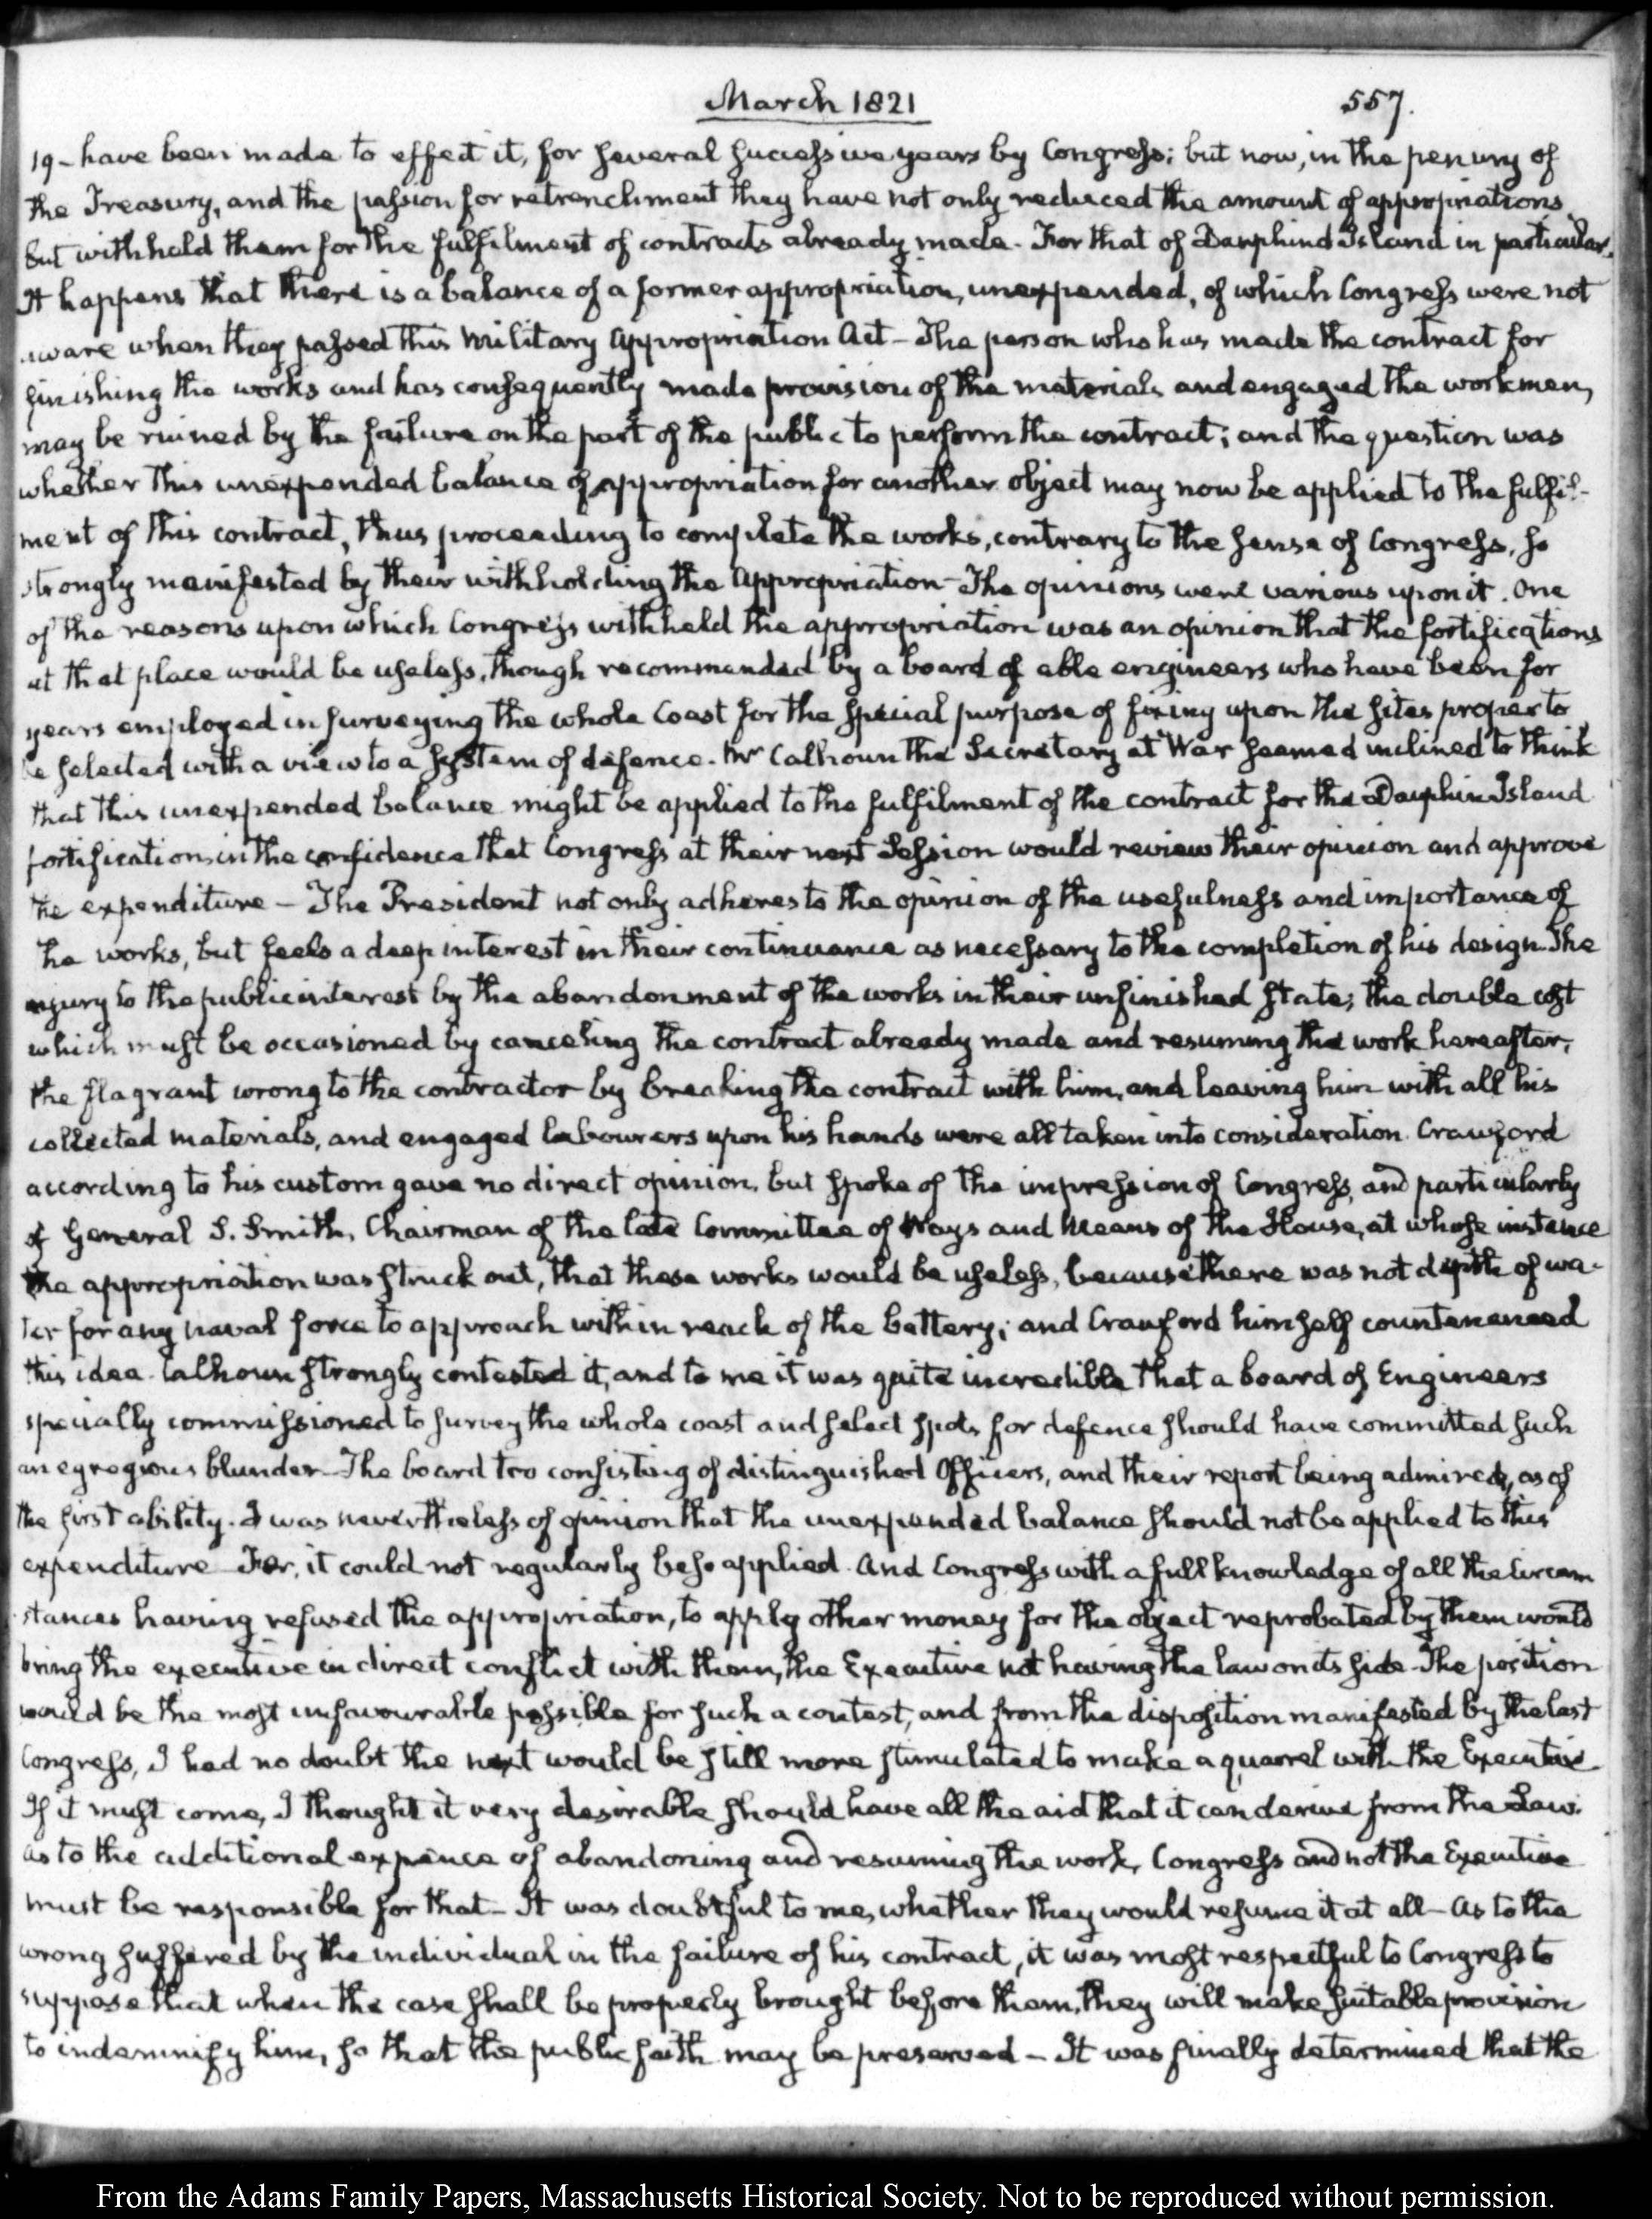 March 1821
557.
19- have been made to effect it, for several successive years by Congress; but now, in the penury of
the Treasury, and the passion for retrenchment they have not only reduced the amount of appropriations
but withheld them for the fulfilment of contracts already made. For that of Dauphind Island in particular.
It happens that there is a balance of a former appropriation, unexpended, of which Congress were not
aware when they passed this Military Appropriation Act - The person who has made the contract for
finishing the works and has consequently made provision of the materials and engaged the workmen,
may be ruined by the failure on the part of the public to perform the contract; and the question was
whether this unexpended balance of appropriation for another object may now be applied to the fulfil-
ment of this contract, thus proceeding to complete the works, contrary to the sense of Congress, so
strongly manifested by their withholding the appropriation - The opinions were various upon it. One
of the reasons upon which Congress withheld the appropriation was an opinion that the fortifications
at that place would be useless, though recommended by a board of able engineers who have been for
years employed in surveying the whole Coast for the special purpose of fixing upon the sites proper to
be selected with a view to a system of defence. Mr Calhoun the Secretary at War seemed inclined to think
that this unexpended balance might be applied to the fulfilment of the contract for the Dauphin Island
fortifications in the confidence that Congress at their next Session would review their opinion and approve
the expenditure - The President not only adheres to the opinion of the usefulness and importance of
the works, but feels a deep interest in their continuance as necessary to the completion of his design. The
injury to the public interest by the abandonment of the works in their unfinished state; the double cost
which must be occasioned by canceling the contract already made and resuming the work hereafter,
the flagrant wrong to the contractor by breaking the contract with him, and leaving him with all his
collected materials, and engaged labourers upon his hands were all taken into consideration. Crawford
according to his custom gave no direct opinion, but spoke of the impression of Congress, and particularly
of General S. Smith, Chairman of the late Committee of Ways and Means of the House, at whose instance
the appropriation was struck out, that these works would be useless, because there was not depth of wa-
ter for any naval force to approach within reach of the battery; and Crawford himself countenanced
this idea. Calhoun strongly contested it, and to me it was quite incredible that a board of Engineers
specially commissioned to survey the whole coast and select spots for defence should have committed such
an egregious blunder - The board too consisting of distinguished Officers, and their report being admired, as of
the first ability. I was nevertheless of opinion that the unexpended balance should not be applied to this
expenditure - For, it could not regularly be so applied. And Congress with a full knowledge of all the circum
stances having refused the appropriation, to apply other money for the object reprobated by them would
bring the executive in direct conflict with them, the Executive not having the law on its side - The position
would be the most unfavourable possible for such a contest, and from the disposition manifested by the last
Congress, I had no doubt the next would be still more stimulated to make a quarrel with the Executive.
If it must come, I thought it very desirable should have all the aid that it can derive from the Law.
As to the additional expence of abandoning and resuming the work, Congress and not the Executive
must be responsible for that - It was doubtful to me, whether they would resume it at all - As to the
wrong suffered by the individual in the failure of his contract, it was most respectful to Congress to
suppose that when the case shall be properly brought before them, they will make suitable provision
to indemnify him, so that the public faith may be preserved - It was finally determined that the
From the Adams Family Papers, Massachusetts Historical Society. Not to be reproduced without permission.